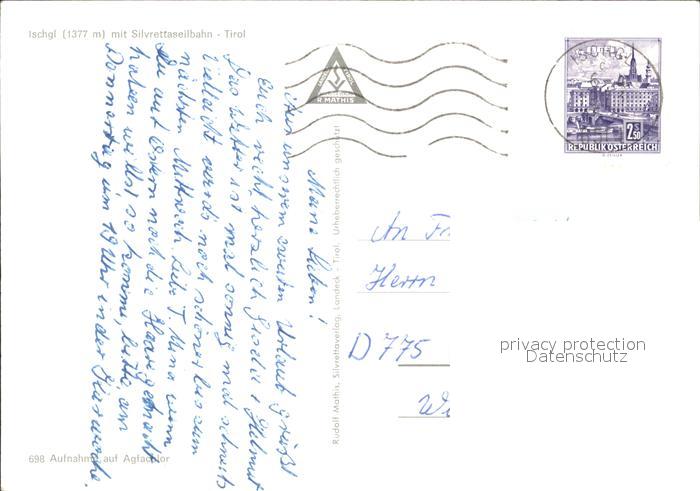 Ischgl (1377 m) mit Silvrettaseilbahn - Tirol
R. MATHIS
2.50
REPUBLIK ÖSTERREICH
Meine Lieben!
Aus unserem zweiten Urlaub grüßt
Euch recht herzlich Gisela + Helmut
Das Wetter ist mal sonnig mal schmutz
Vielleicht wird's noch schöner bis zum
nächsten Mittwoch. Liebe T. wenn
Du auf Ostern noch die Haare gemacht
haben willst so komme, bitte am
Donnerstag um 19 Uhr in der Karwoche.
Rudolf Mathis, Silvrettaverlag, Landeck - Tirol. Urheberrechtlich geschützt!
An Fr
Herrn
D 775
privacy protection
Datenschutz
698 Aufnahme auf Agfacolor